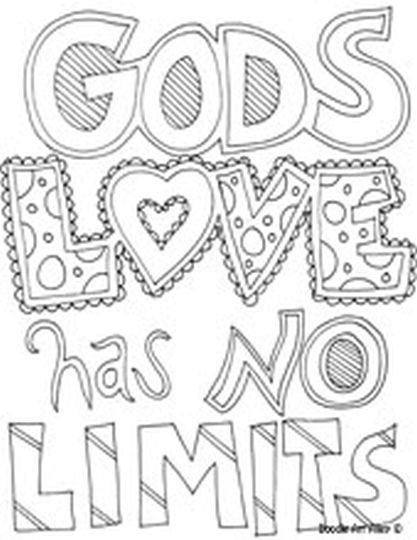 GODS
LOVE
has NO
LIMITS
Doodle Art Alley ©